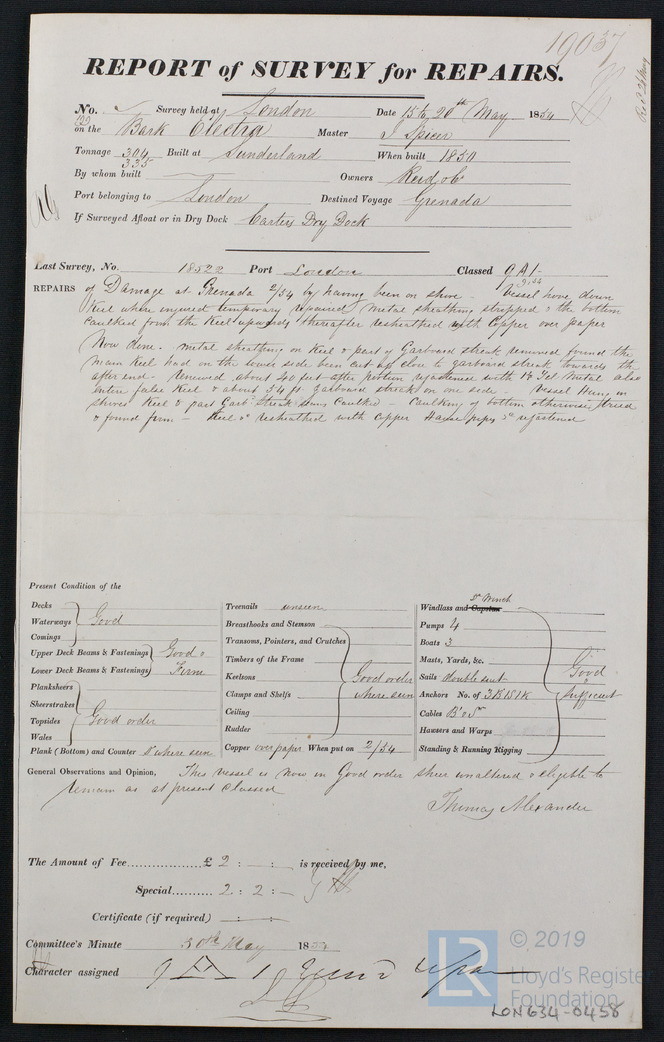 19037
REPORT of SURVEY for REPAIRS.
No. 129 Survey held at London Date 15th, 20th May 1854
on the Bark Electra Master J Spicer
Tonnage 304 Built at Sunderland When built 1850
335
By whom built Owners Reid & Co
Port belonging to London Destined Voyage Grenada
If Surveyed Afloat or in Dry Dock Carters Dry Dock
Last Survey, No. 18522 Port London Classed 9 A1
REPAIRS of Damage at Grenada 2/54 by having been on shore. Vessel hove down
Keel where injured temporary repaired Metal sheathing stripped & the bottom
caulked from the Keel upwards thereafter resheathed with Copper over paper
Now done. Metal sheathing on Keel & part of Garboard streak removed found the
main Keel had on the lower side been cut up close to garboard streak towards the
after end. Renewed about 40 feet after portion refastened with Metal also
entire false Keel & about 34 ft garboard streak on one side. Vessel Hung in
shores Keel & part Garb Streak seams Caulked. Caulking of bottom otherwise tried
& found firm Keel &c resheathed with copper Hause pipes refastened
Present Condition of the
Decks
Waterways Good
Comings
Upper Deck Beams & Fastenings Good &
Lower Deck Beams & Fastenings Firm
Planksheers
Sheerstrakes
Topsides Good order
Wales
Plank (Bottom) and Counter Do where seen
Treenails unseen
Breasthooks and Stemson
Transoms, Pointers, and Crutches
Timbers of the Frame
Keelsons Good order
Clamps and Shelfs where seen
Ceiling
Rudder
Copper over paper When put on 2/54
Do Winch
Windlass and Capstan
Pumps 4
Boats 3
Masts, Yards, &c. Good
Sails double suit &
Anchors No. of 3B 1S 1K Sufficient
Cables
Hawsers and Warps
Standing & Running Rigging
General Observations and Opinion, This vessel is now in Good order sheer unaltered & eligible to
remain as at present Classed
Thomas Alexander
The Amount of Fee £ 2 : : is received by me,
Special 2 : 2 : –
Certificate (if required) : :
Committee's Minute 30th May 185
Character assigned 9 A 1
© 2019
LR
Lloyd's Register
Foundation
LON634-0458